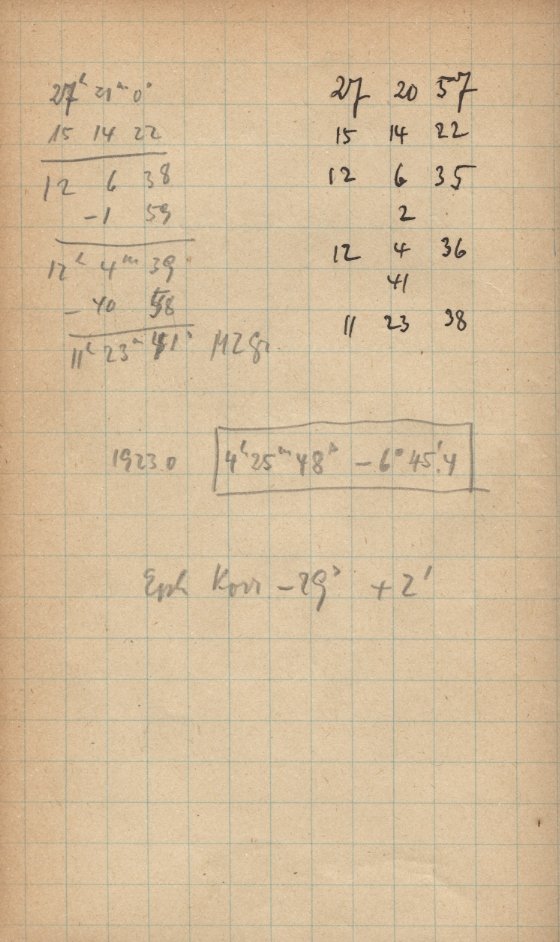 27ʰ 21ᵐ 0ˢ
15 14 22
12 6 38
-1 59
12ʰ 4ᵐ 39ˢ
- 40 58
11ʰ 23ᵐ 41ˢ MZGr.
27 20 57
15 14 22
12 6 35
2
12 4 36
41
11 23 38
1923.0 4ʰ 25ᵐ 48ˢ - 6° 45′.4
Eph Korr - 29ˢ + 2′